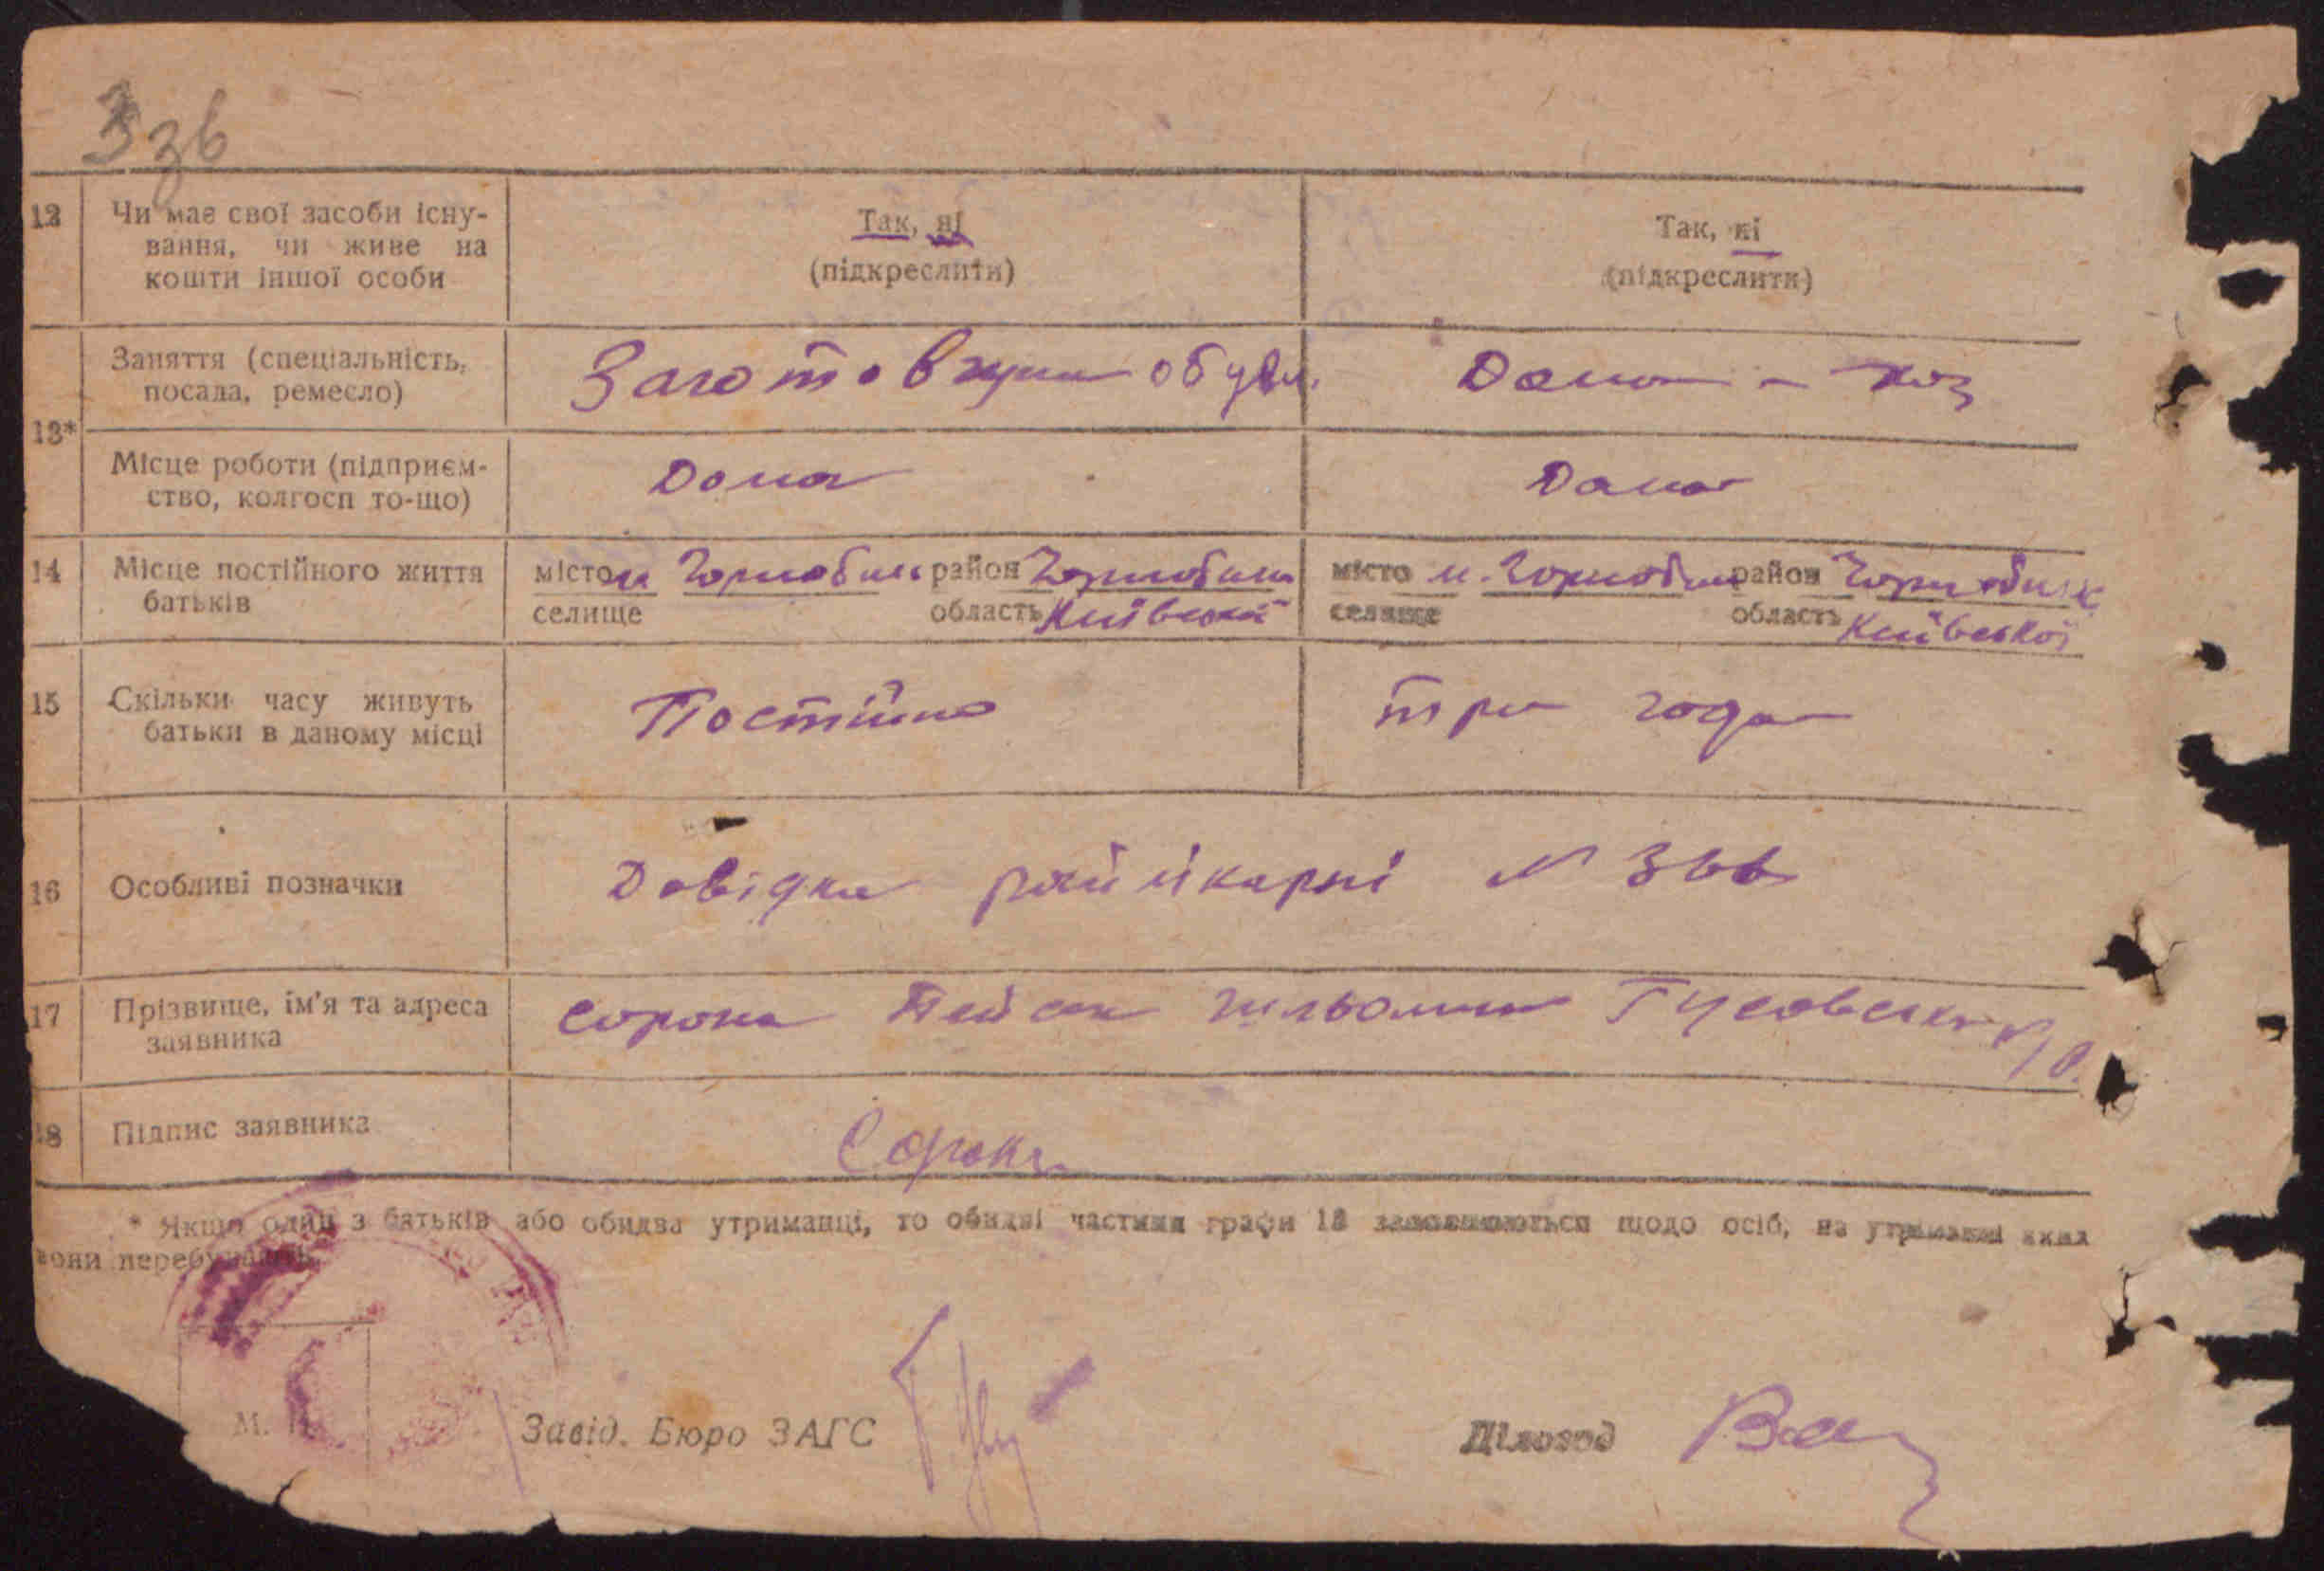 3зв
12 Чи має свої засоби існу- Так, ні Так, ні
вання, чи живе на (підкреслити) (підкреслити)
кошти іншої особи
13* Заняття (спеціальність, Загото обуви. Дома - хоз
посада, ремесло)
Місце роботи (підприєм- Дома Дома
ство, колгосп то-що)
14 Місце постійного життя місто м Чорнобиль район Чорнобиль місто м. Чорнобиль район Чорнобильск
батьків селище область Київської селище область Київської
15 Скільки часу живуть Постійно три года
батьки в даному місці
16 Особливі позначки Довідка райлікарні № 366
17 Прізвище, ім'я та адреса Сорока Пейсак
заявника
18 Підпис заявника Сорока
* Якщо один з батьків або обидва утриманці, то обидві частини графи 13 заповнюються щодо осіб, на утриманні яких
вони перебувають.
М. П.
Завід. Бюро ЗАГС Діловод